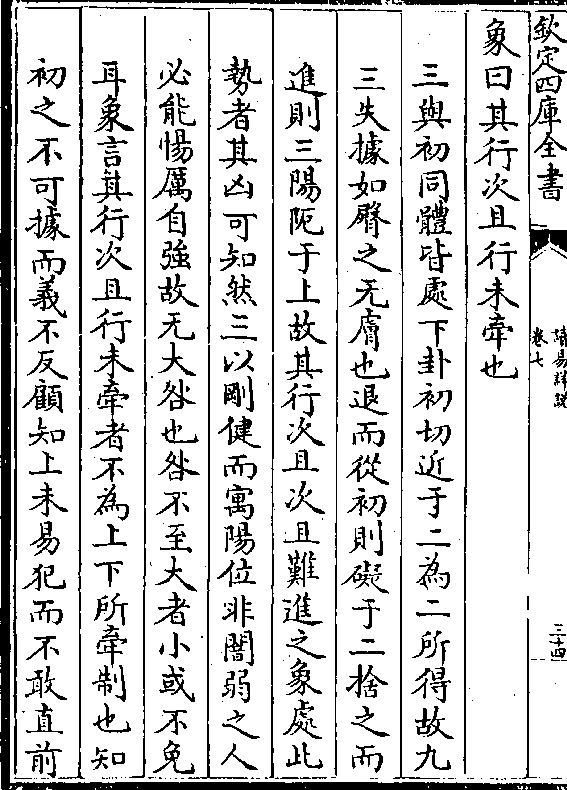 欽定四庫全書
讀易詳說
卷七
三十四
象曰其行次且行未牽也
三與初同體皆處下卦初切近于二為二所得故九
三失據如臀之无膚也退而從初則礙于二捨之而
進則三陽阨于上故其行次且次且難進之象處此
勢者其凶可知然三以剛健而寓陽位非闇弱之人
必能惕厲自強故无大咎也咎不至大者小或不免
耳象言其行次且行未牽者不為上下所牽制也知
初之不可據而義不反顧知上未易犯而不敢直前